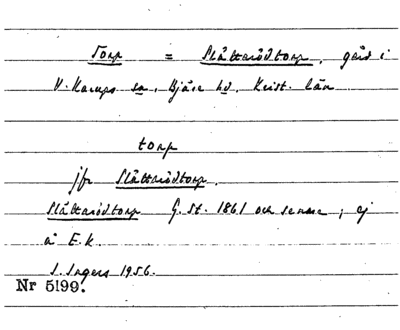 Torp = Slättarödtorp, gård i
V. Karups sn, Bjäre hd. Krist. län
torp
jfr Slättarödtorp.
Slättarödtorp G. St. 1861 och senare; ej
å E.k.
I. Ingers 1956.
Nr 5199.